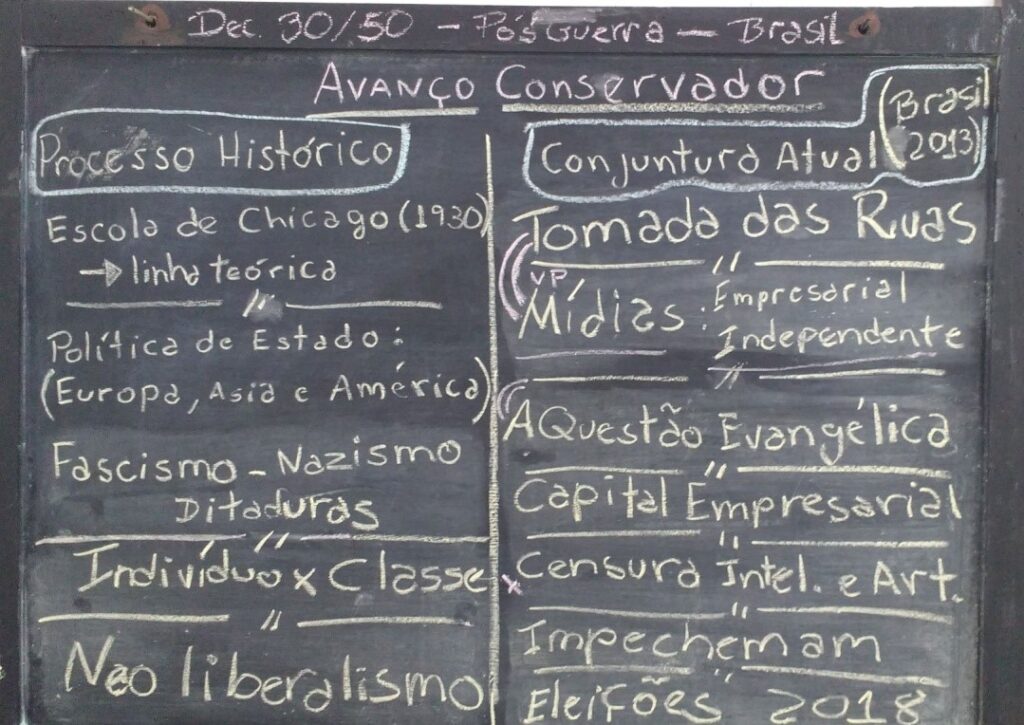 Dec. 30/50 - Pós Guerra - Brasil
Avanço Conservador
(Brasil 2013)
Processo Histórico
Escola de Chicago (1930)
→ linha teórica
Política de Estado:
(Europa, Asia e América)
Fascismo - Nazismo
Ditaduras
Indivíduo x Classe
Neo liberalismo
Conjuntura Atual
Tomada das Ruas
VP
Mídias: Empresarial
Independente
A Questão Evangélica
Capital Empresarial
x Censura Intel. e Art.
Impechemam
Eleições 2018